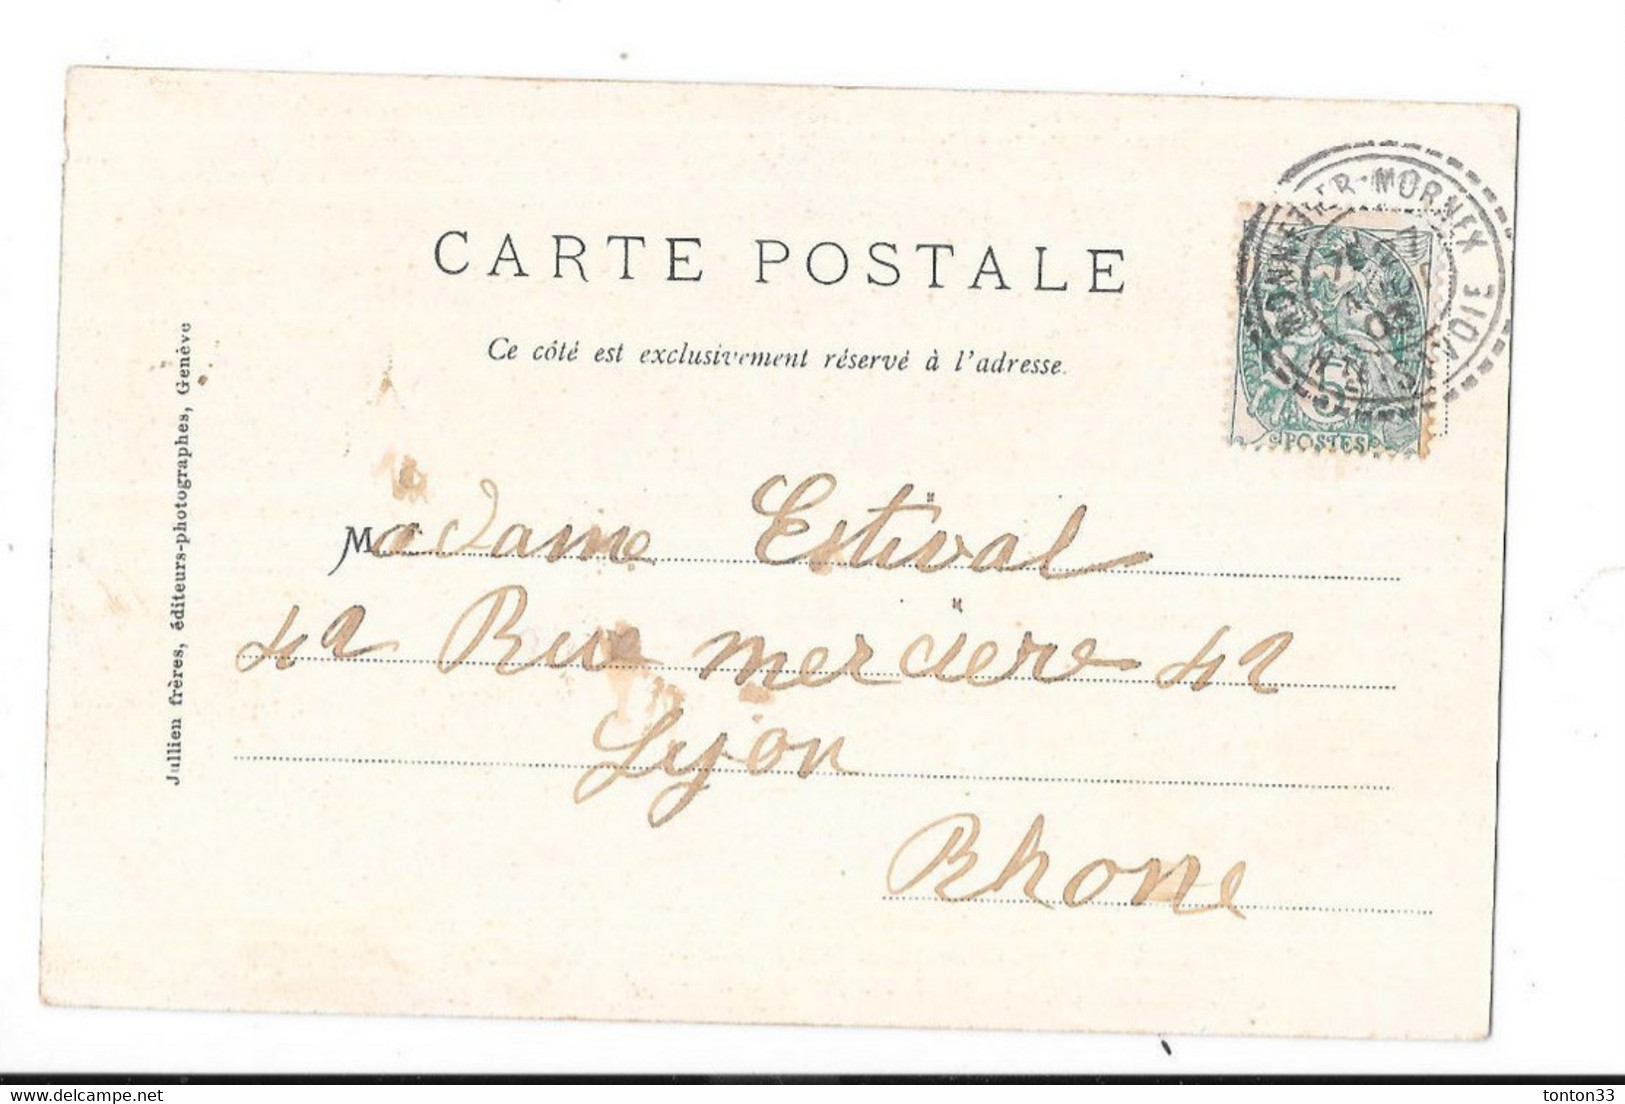 MONNETIER-MORNEX
HTE SAVOIE
03
5
POSTES
CARTE POSTALE
Ce côté est exclusivement réservé à l'adresse.
Madame Estival
42 Rue merciere 42
Lyon
Rhone
Jullien frères, éditeurs-photographes, Genève
tonton33